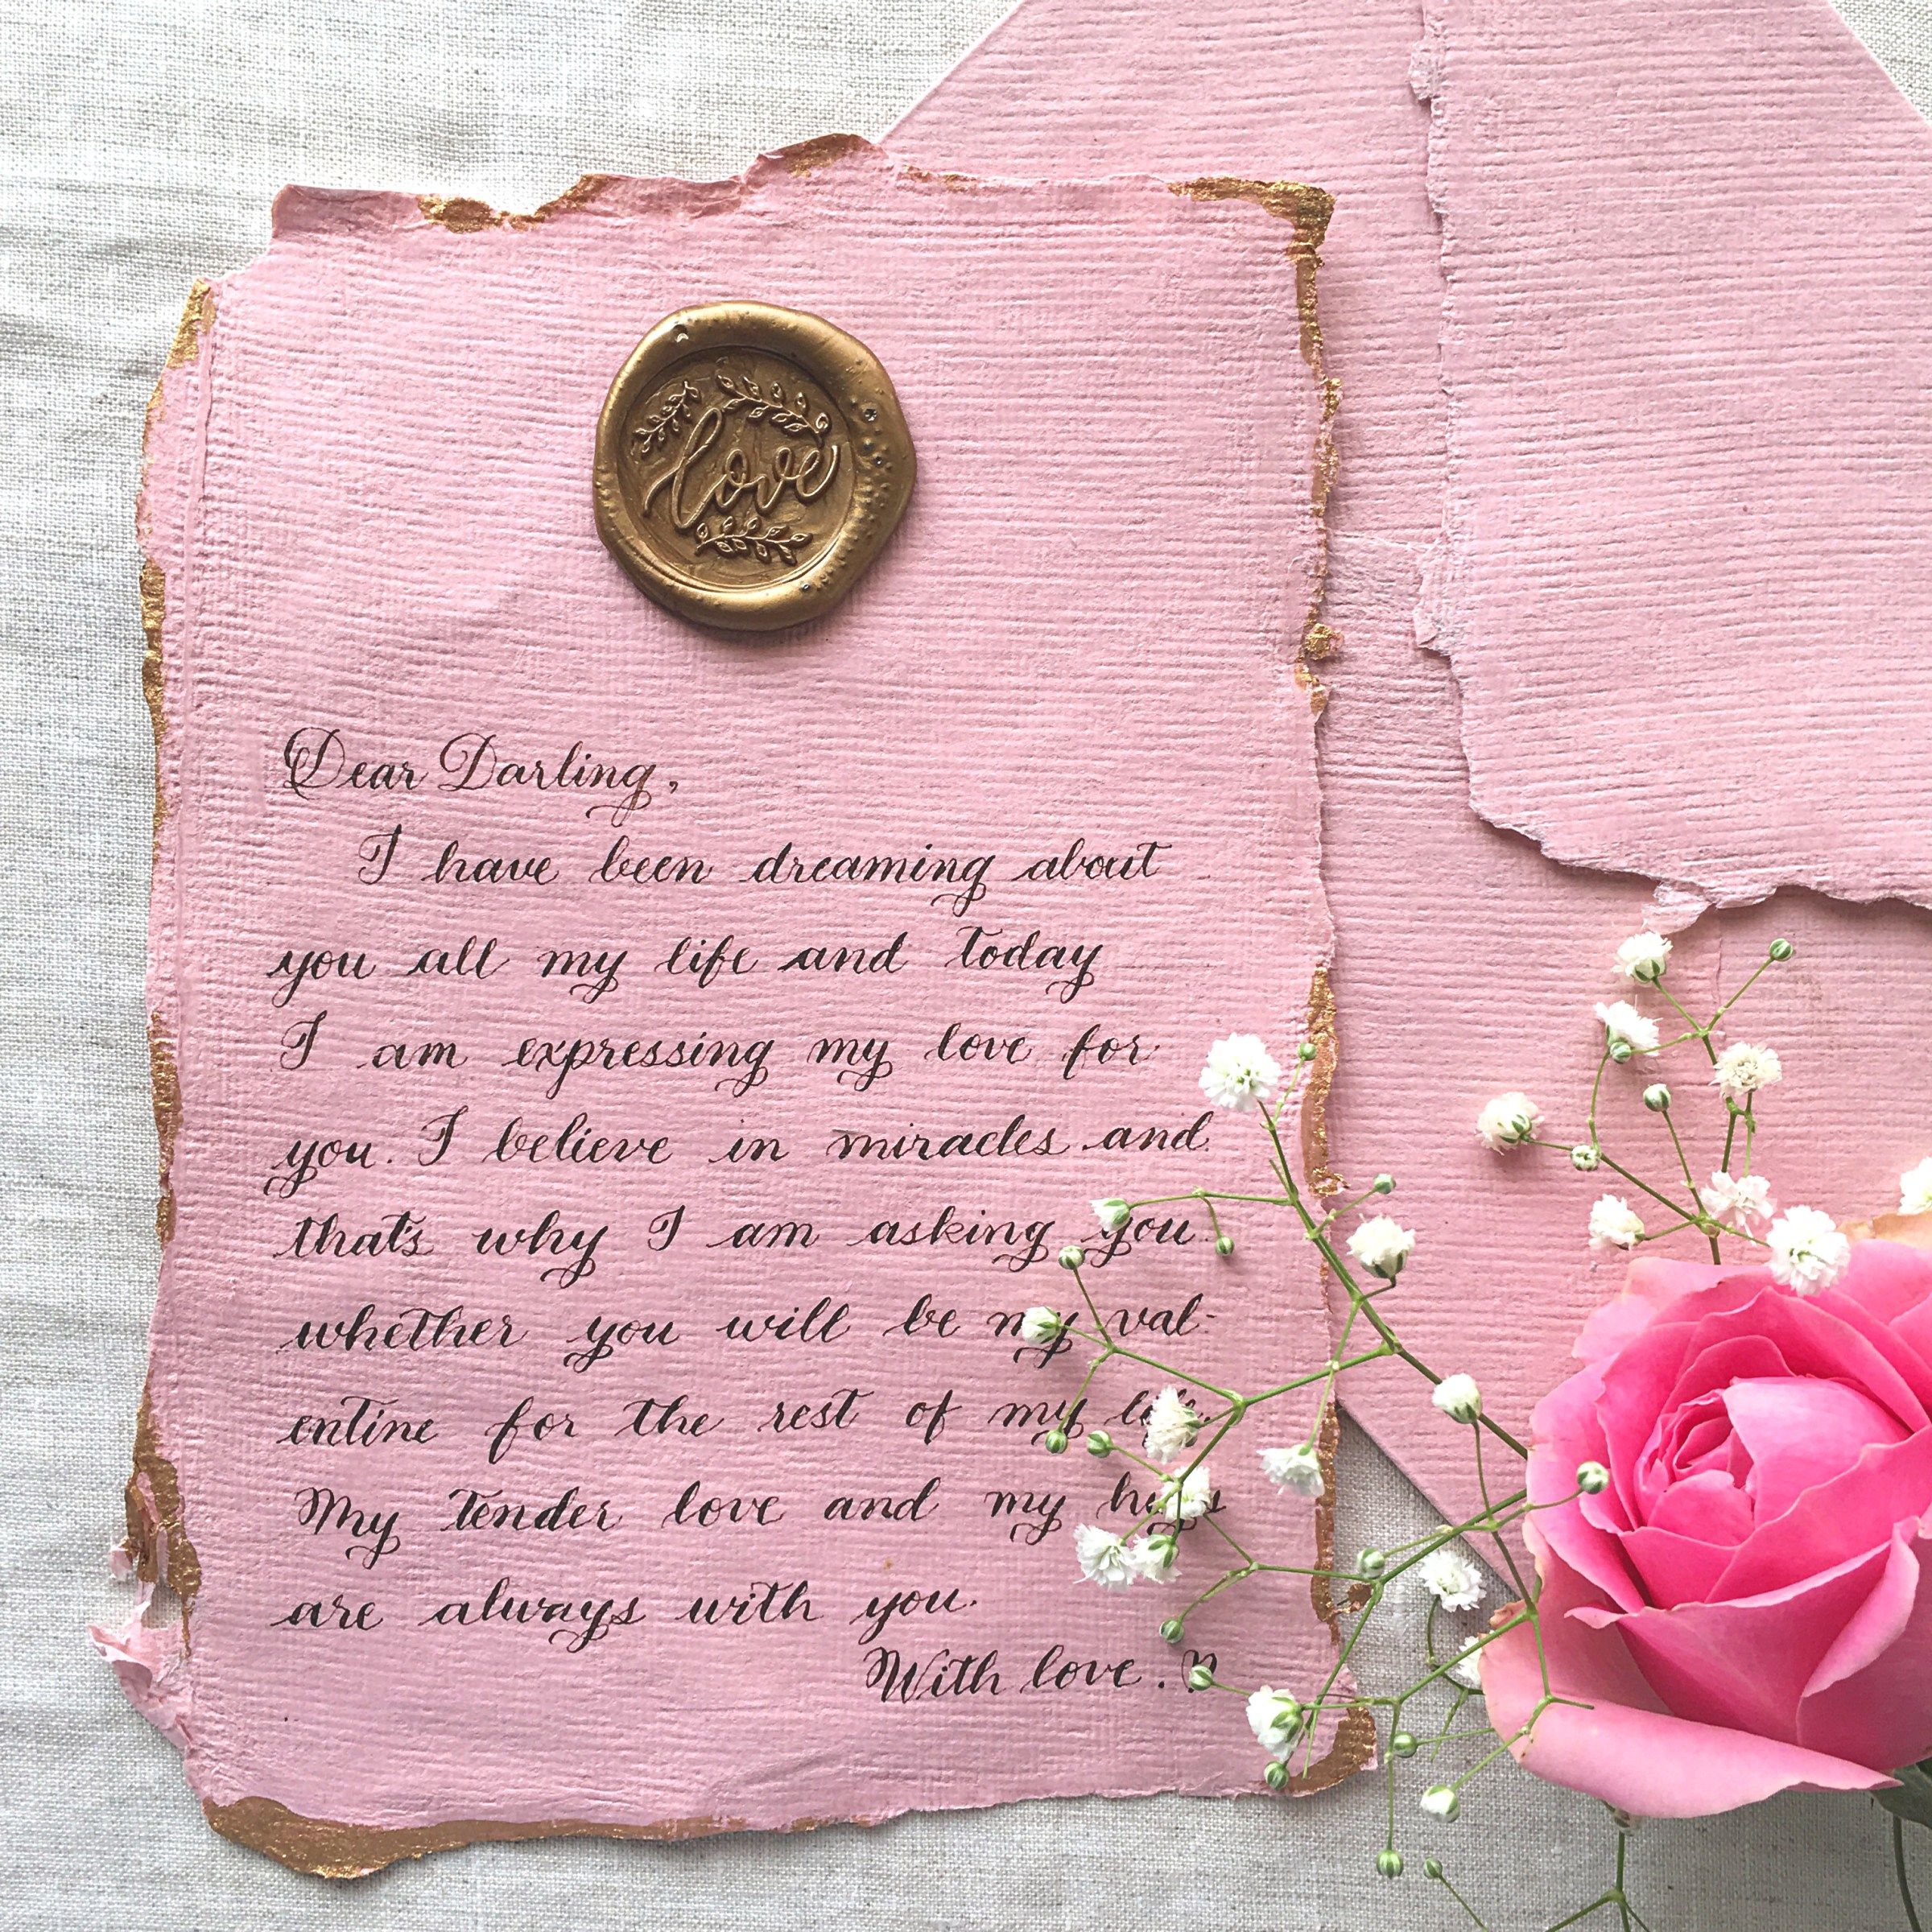 love
Dear Darling,
I have been dreaming about
you all my life and today
I am expressing my love for
you. I believe in miracles and
that's why I am asking you
whether you will be my val-
entine for the rest of my life.
My tender love and my
are always with you.
With love. ♡